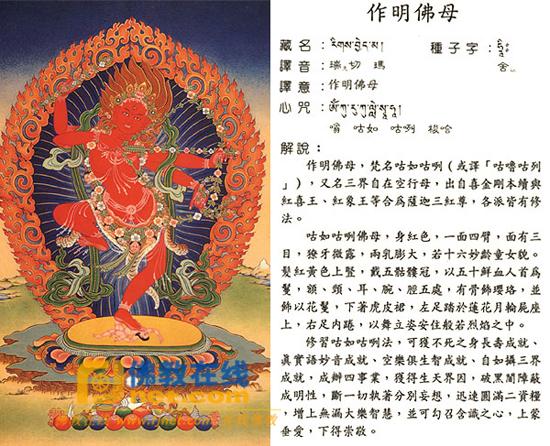 作明佛母
藏名：རིགས་བྱེད་མ། 種子字：ཧྲཱིཿ
譯音：瑞切瑪 舍
譯意：作明佛母
心咒：ཨོཾ་ཀུ་རུ་ཀུ་ལླེ་སྭཱ་ཧཱ།
嗡 咕如 咕咧 梭哈
解說：
作明佛母，梵名咕如咕咧（或譯「咕嚕咕列
」），又名三界自在空行母，出自喜金剛本續與
紅喜王、紅象王等合為薩迦三紅尊，各派皆有修
法。
咕如咕咧佛母，身紅色，一面四臂，面有三
目，獠牙微露，兩乳膨大，若十六妙齡童女貌。
髮紅黃色上豎，戴五骷髏冠，以五十鮮血人首為
鬘，額、頸、耳、腕、脛五處，有骨飾瓔珞，並
飾以花鬘，下著虎皮裙，左足踏於蓮花月輪屍座
上，右足內踡，以舞立姿安住般若烈焰之中。
修習咕如咕咧法，可獲不死之身長壽成就、
真實語妙音成就、空樂俱生智成就、自如攝三界
成就，成辦四事業，獲得生天界因，破黑闇障蔽
成明性，斷一切執著分別妄想，迅速圓滿二資糧
，增上無漏大樂智慧，並可勾召含識之心，上蒙
垂愛，下得崇敬。
佛教在线
net.com